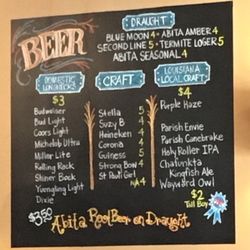 BEER
DRAUGHT
BLUE MOON 4 • ABITA AMBER 4
SECOND LINE 5 • TERMITE LAGER 5
ABITA SEASONAL 4
DOMESTIC
LONGNECKS
$3
Budweiser
Bud Light
Coors Light
Michelob Ultra
Miller Lite
Rolling Rock
Shiner Bock
Yuengling Light
Dixie
CRAFT
Stella 5
Suzy B 4
Heineken 4
Corona 4
Guiness 5
Strong Bow 4
St Pauli Girl
N/A 4
LOUISIANA
LOCAL CRAFT
$4
Purple Haze
Parish Envie
Parish Canebrake
Holy Roller IPA
Chafunkta
Kingfish Ale
Wayward Owl
$2
Tall Boy
$3.50
Abita Root Beer on Draught